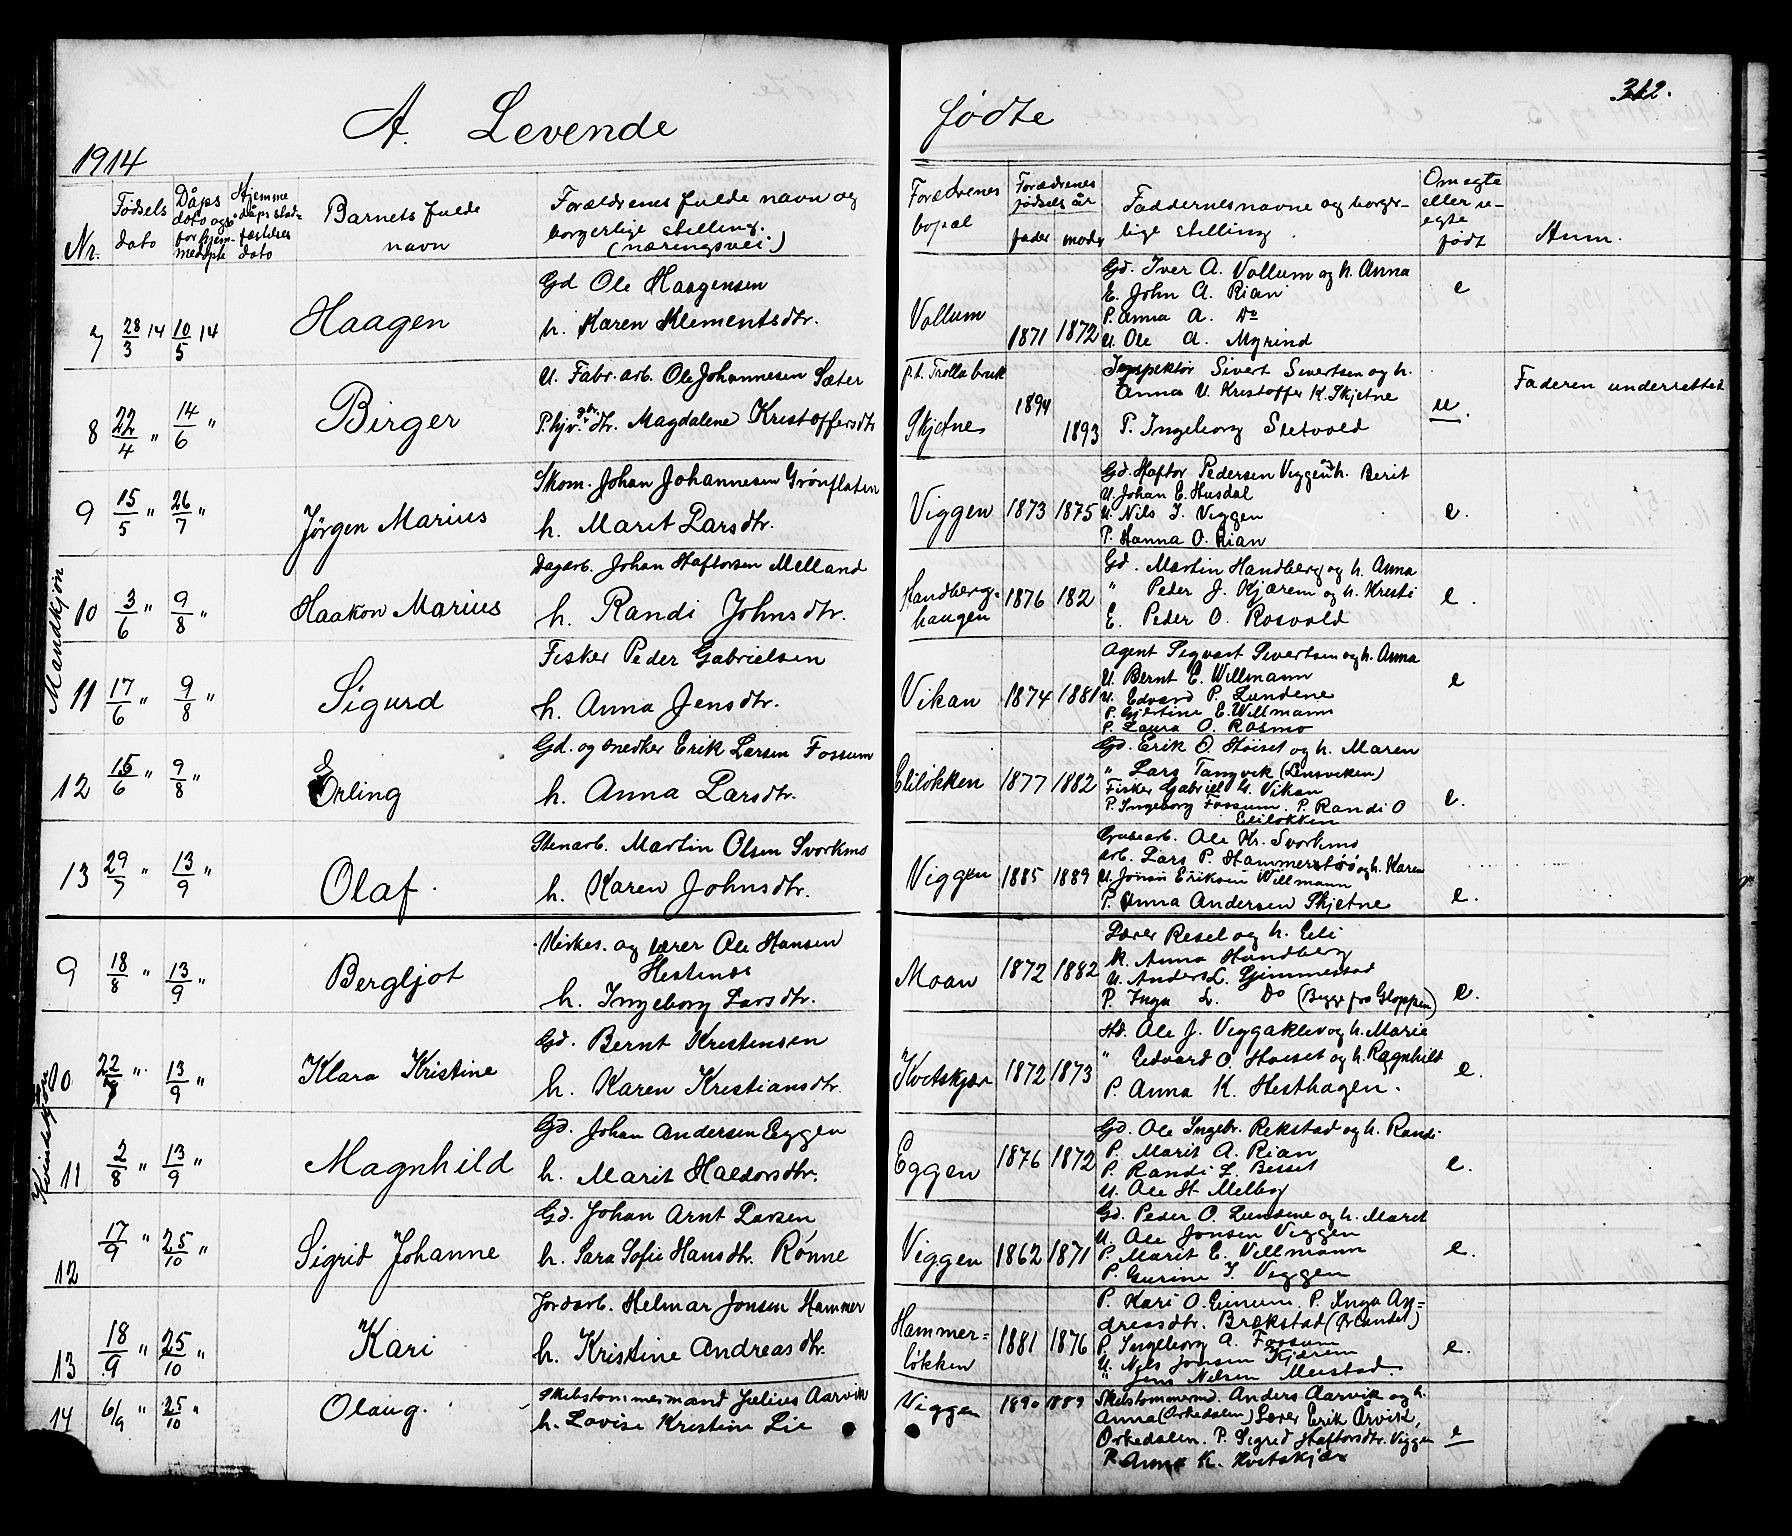 A. Levende fødte
312.
1914
Nr.
Fødsels dato
Dåps dato også for hjem- medøpte
Hjemme dåps stad- fæstelses dato
Barnets fulde navn
Forældrenes fulde navn og borgerlige stilling. (næringsvei)
Forældrenes bopæl
Forældrenes fødsels år
fader moder
Faddernes navne og borger- lige stilling.
Om egte eller u- egte født
Anm.
Mandkjøn
7 28/3 14 10/5 14 Haagen
Gd Ole Haagensen
h. Karen Klementsdtr.
Vollum 1871 1872
Gd. Iver A. Vollum og h. Anna
E. John A. Rian
P. Anna A. Do
U. Ole A. Myrind
e
8 22/4 " 14/6 " Birger
U. Fabr. arb. Ole Johannesen Sæter
P. hjv. gbr. dtr. Magdalene Kristoffersdtr
p.t. Trolla bruk
Skjetnes 1894 1893
Inspektør Sivert Sivertsen og h.
Anna U. Kristoffer K. Skjetne
P. Ingeborg Stetvold
u.
Faderen underrettet
9 15/5 " 26/7 " Jørgen Marius
Skom. Johan Johannesen Grønflaten
h. Marit Larsdtr.
Viggen 1873 1875
Gd. Haftor Pedersen Viggen og h. Berit
U. Johan E. Husdal
U. Nils J. Viggen
P. Hanna O. Rian
e.
10 3/6 " 9/8 " Haakon Marius
Dagarb. Johan Haftorsen Melland
h. Randi Johnsdtr.
Handberg- haugen 1876 182
Gd. Martin Handberg og h. Anna
" Peder J. Kjærem og h. Kristi
E. Peder O. Rosvold
e.
11 17/6 " 9/8 " Sigurd
Fisker Peder Gabrielsen
h. Anna Jensdtr.
Vikan 1874 1881
Agent Sigvart Sivertsen og h. Anna
U. Bernt E. Willmann
U. Edvard P. Lundene
P. Gjertine E. Willmann
P. Laura O. Rosmo
e
12 15/6 " 9/8 " Erling
Gd. og snedker Erik Larsen Fossum
h. Anna Larsdtr.
Eliløkken 1877 1882
Gd. Erik O. Høiset og h. Maren
" Lars Tangvik (Lensviken)
Fisker Gabriel G. Vikan
P. Ingeborg Fossum. P. Randi O
Eliløkken
e.
13 29/7 " 13/9 " Olaf.
Stenarb. Martin Olsen Svorkmo
h. Karen Johnsdtr.
Viggen 1885 1889
Grubearb. Ole Kr. Svorkmo
arb. Lars P. Hammersbrø og h. Karen
U. Jonas Eriksen Willmann
P. Anna Andersen Skjetne
e.
Kvindekjøn
9 18/8 " 13/9 " Bergljot
Kirkes. og lærer Ole Hansen
Hestenes
h. Ingeborg Larsdtr.
Moan 1872 1882
Lærer Resel og h. Eli
K. Anna Handberg
U. Anders L. Gjimmestad
P. Inga L. Do (Begge fra Gloppen)
e.
10 22/8 " 13/9 " Klara Kristine
Gd. Bernt Kristensen
h. Karen Kristiansdtr.
Kvitskjær 1872 1873
Hd. Ole J. Viggaklev og h. Marie
" Edvard O. Høiset og h. Ragnhild
P. Anna K. Hesthagen.
e.
11 2/8 " 13/9 " Magnhild
Gd. Johan Andersen Eggen
h. Marit Haldorsdtr.
Eggen 1876 1872
Gd. Ole Ingebr. Rekstad og h. Randi
P. Marit A. Rian
P. Randi L. Besset
U. Ole H. Melby
e.
12 17/9 " 25/10 " Sigrid Johanne
Gd. Johan Arnt Larsen
h. Sara Sofie Hansdtr. Rønne
Viggen 1862 1871
Gd. Peder O. Lundene og h. Marit
U. Ole Jonsen Viggen
P. Marit E. Villmann
P. Gurine I. Viggen
e.
13 18/9 " 25/10 " Kari
Jordarb. Helmar Jonsen Hammer
h. Kristine Andreasdtr.
Hammer- løkken 1881 1876
P. Kari O. Einum. P. Inga An-
dreasdtr. Brækstad (Ørlandet)
P. Ingeborg A. Fossum
U. Nils Jonsen Kjærem
" Jens Nilsen Meistad.
e.
14 6/9 " 25/10 " Olaug.
Skibstømmermand Julius Aarvik
h. Lovise Kristine Lie
Viggen 1890 1889
Skibstømmermd. Anders Aarvik og h.
Anna (Orkedalen) Lærer Erik Årvik,
Orkedalen. P. Sigrid Haftorsdtr. Viggen
P. Anna K. Kvitskjær
e